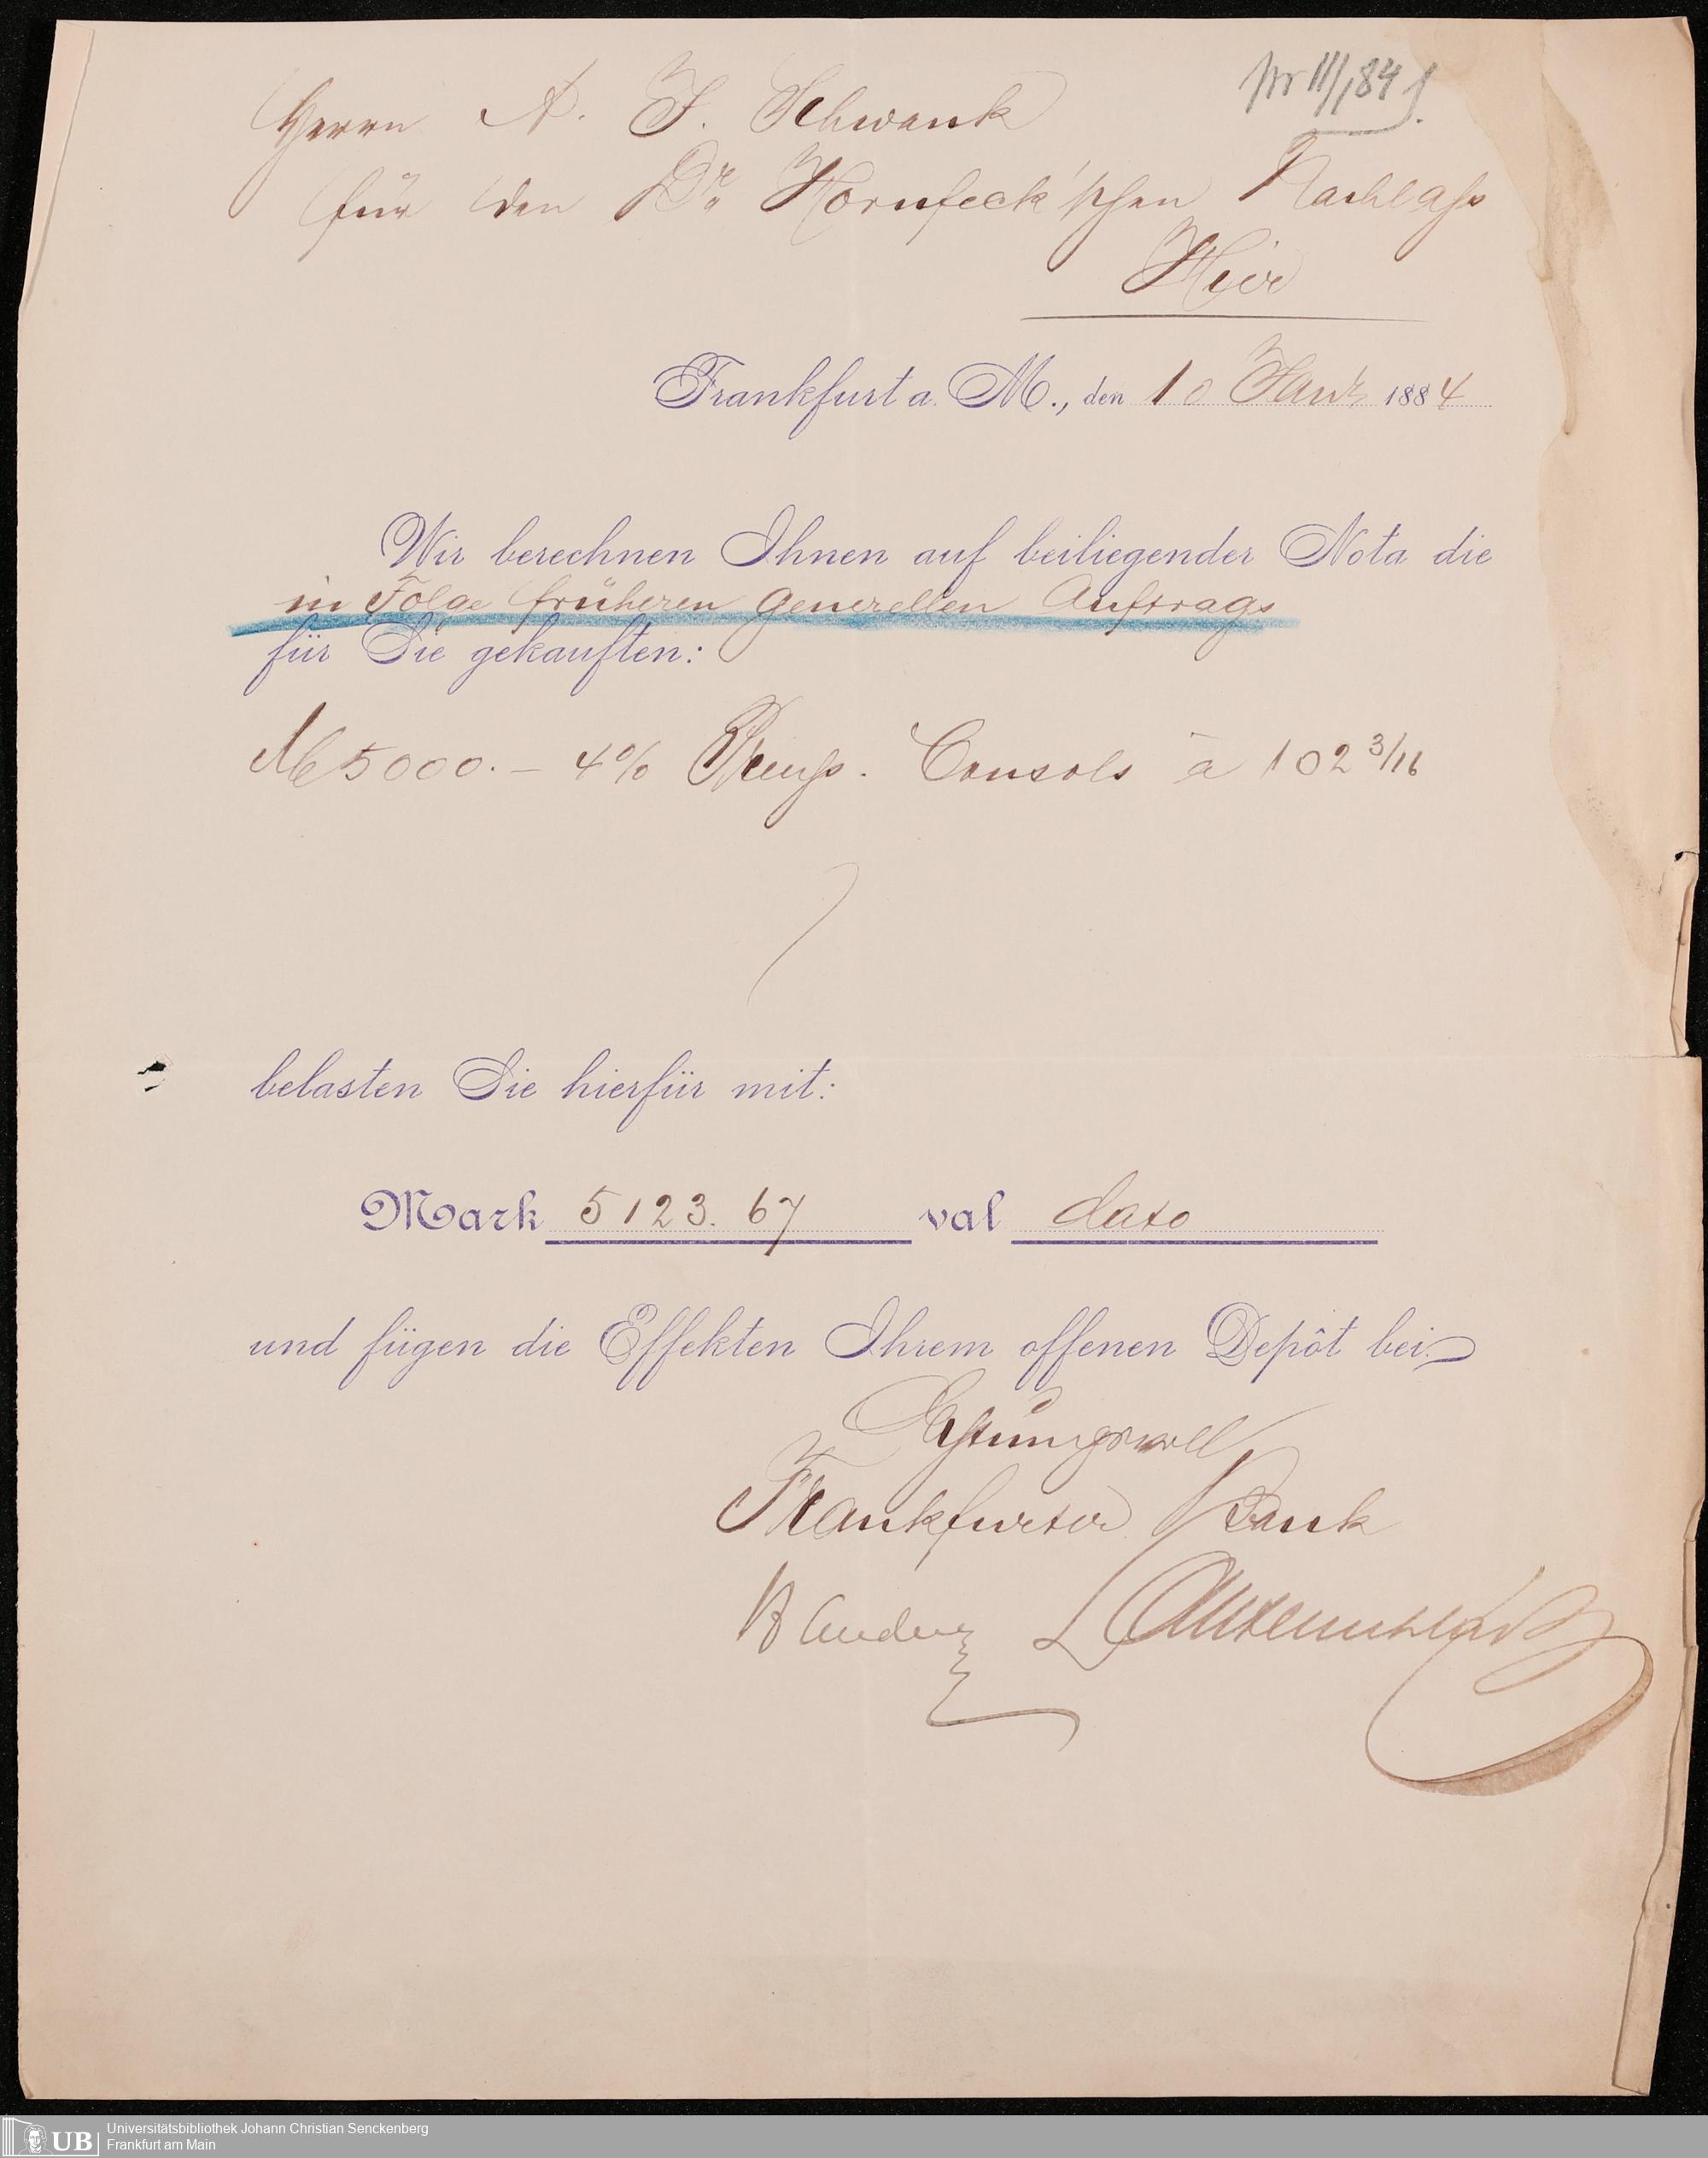 Nr III/184
Herrn A. F. Schwank
für den Dr Hornfeck'schen Nachlaß
Hier
Frankfurt a. M., den 10 Janr 1884
Wir berechnen Ihnen auf beiliegender Nota die
in Folge früheren generellen Auftrags
für Sie gekauften:
M 5000.– 4% Preuß. Consols à 102 3/16
belasten Sie hierfür mit:
Mark 5123. 67 val dato
und fügen die Effekten Ihrem offenen Depôt bei.
Achtungsvoll
Frankfurter Bank
UB Universitätsbibliothek Johann Christian Senckenberg
Frankfurt am Main